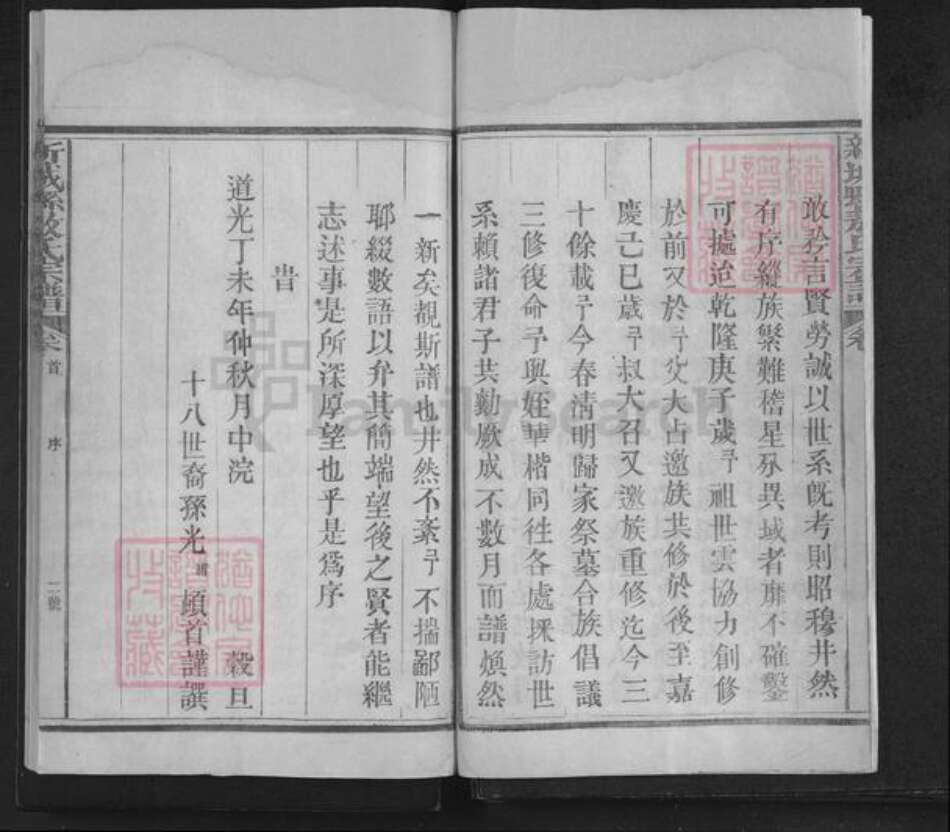 敢矜言賢勞誠以世系旣考則昭穆井然
有序縱族繁難稽星分異域者靡不確鑿
可據迨乾隆庚子歲予祖世雲協力創修
於前又於予父大占邀族共修於後至嘉
慶己巳歲予叔大召又邀族重修迄今三
十餘載予今春清明歸家祭墓合族倡議
三修復命予與姪華楷同徃各處採訪世
系賴諸君子共勷厥成不數月而譜煥然
一新矣覩斯譜也井然不紊予不揣鄙陋
聊綴數語以弁其簡端望後之賢者能繼
志述事是所深厚望也乎是為序
旹
道光丁未年仲秋月中浣 穀旦
十八世裔孫光 頓首謹譔
新城縣敖氏宗譜 卷首 序 二號
FamilySearch